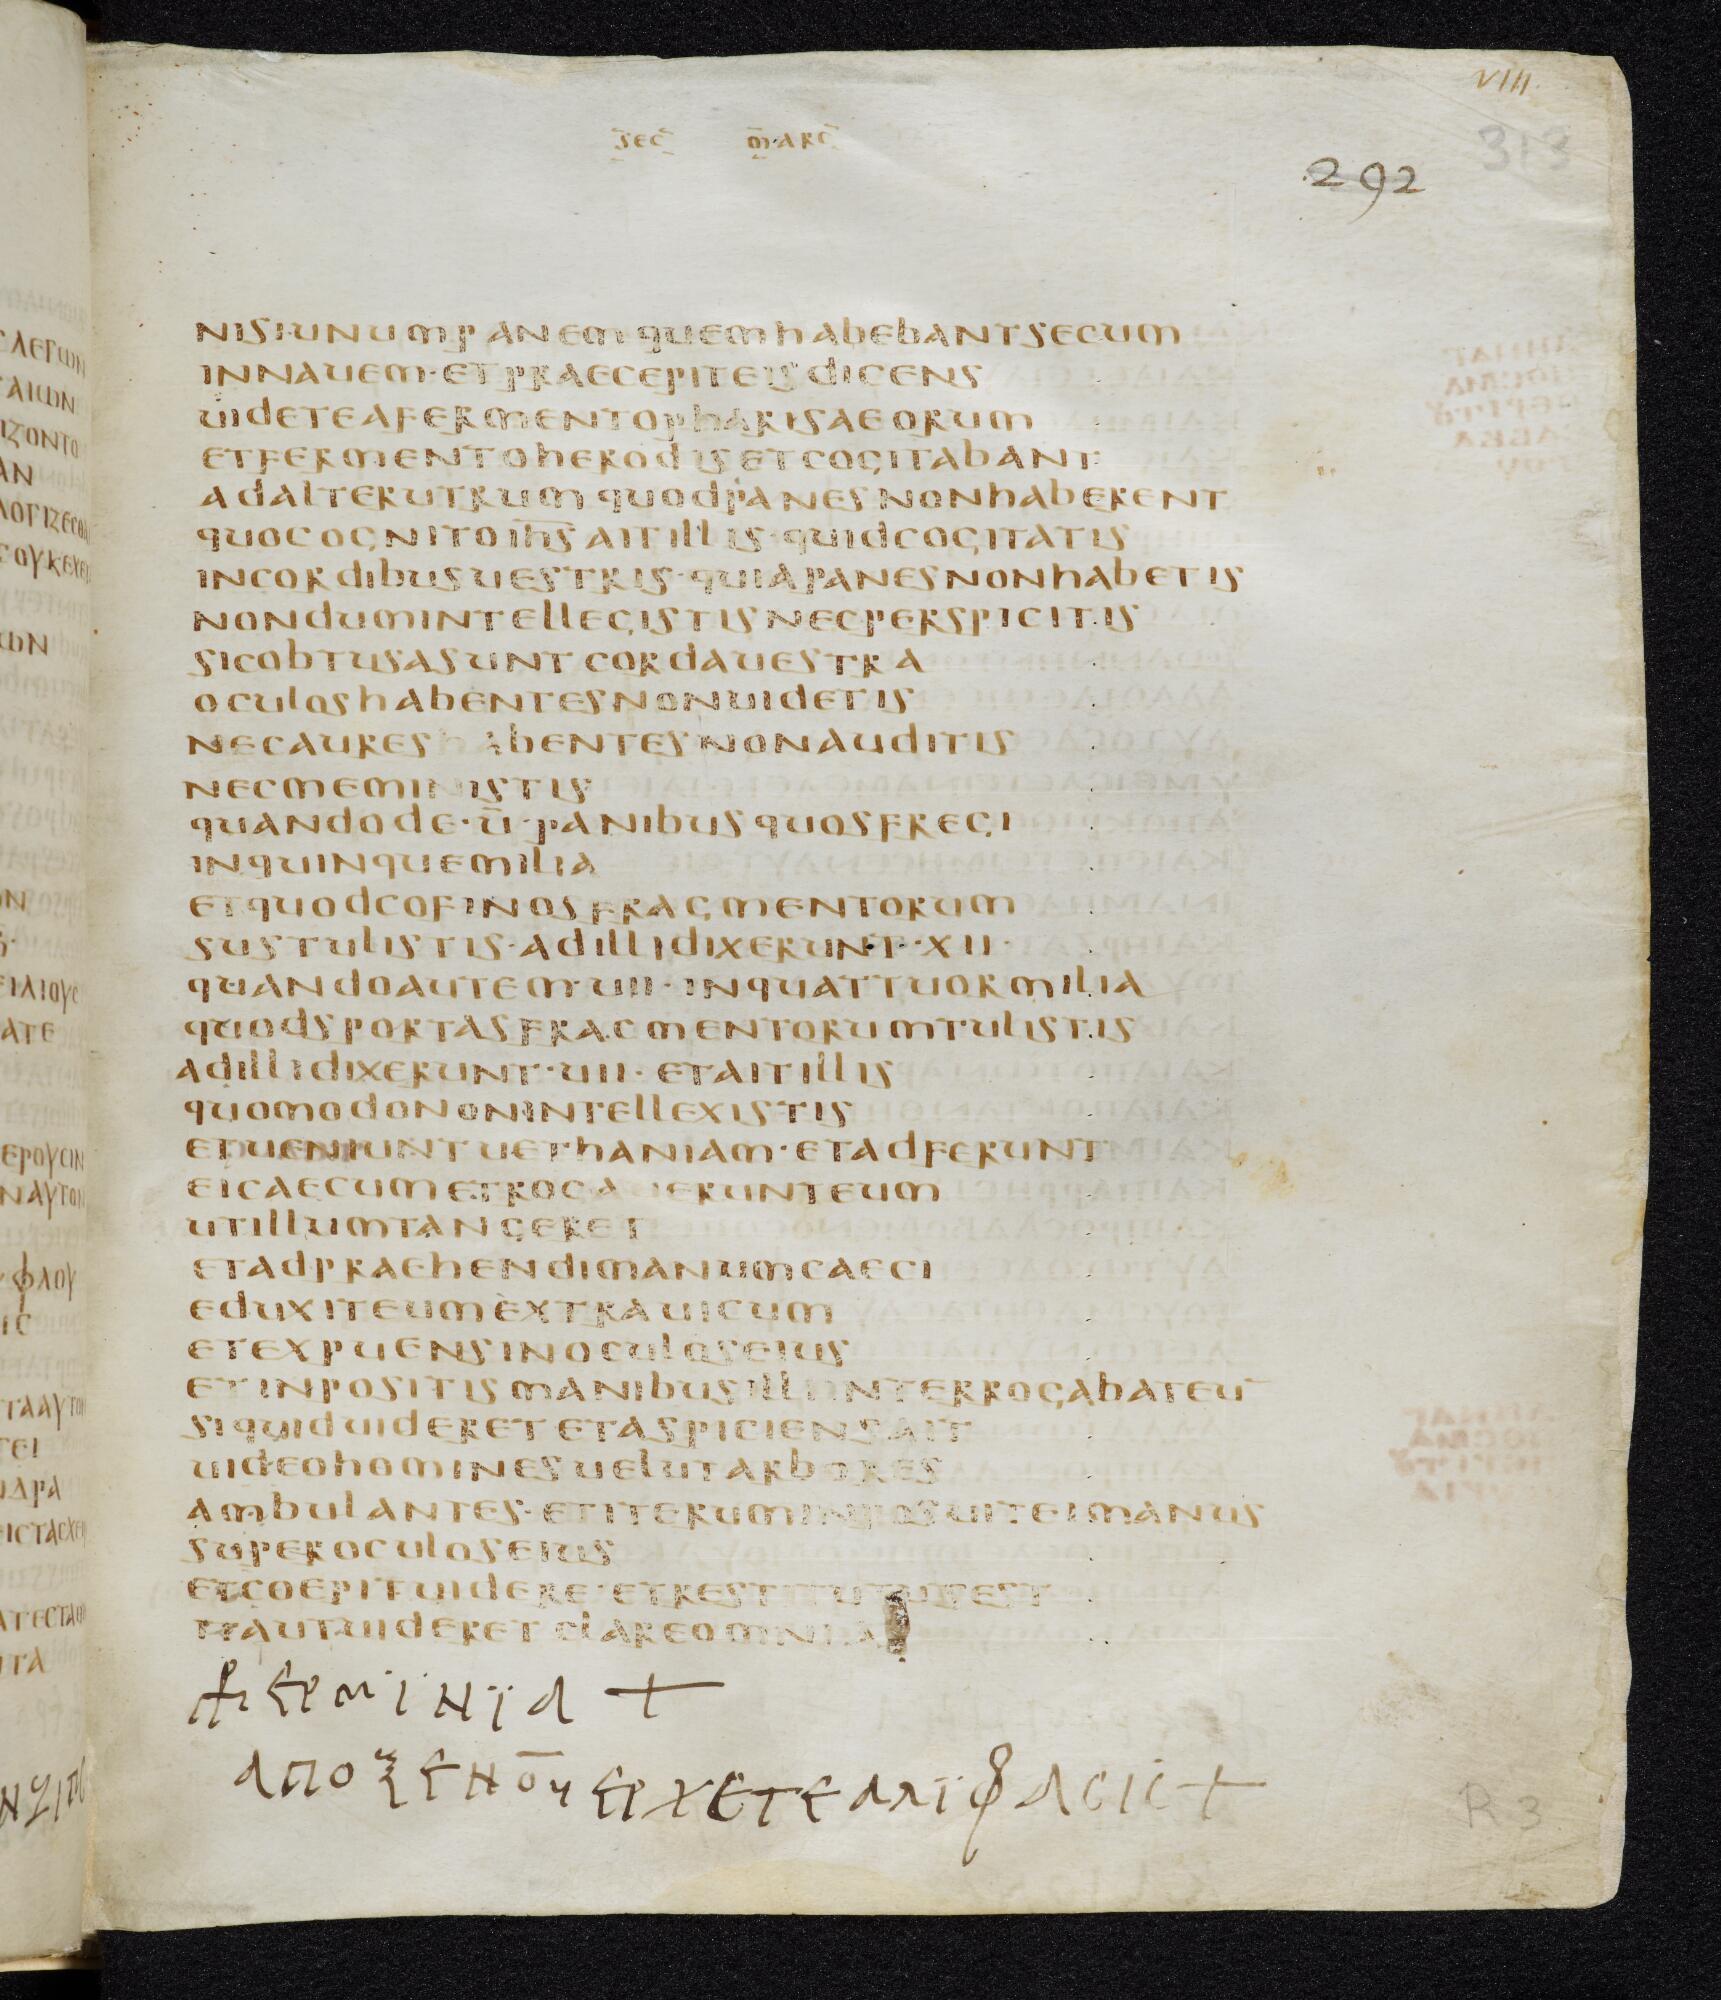 VIII
sec marc
313
292
nisi·unum panem quem habebant secum
in nauem· et praecepit eis dicens
uidete a fermento pharisaeorum
et fermento herodis et cogitabant
ad alterutrum quod panes non haberent
quo cognito ihs̄ ait illis· quid cogitatis
in cordibus uestris· quia panes non habetis
nondum intellegistis nec perspicitis
sic obtusa sunt corda uestra
oculos habentes non uidetis
nec aures habentes non auditis
nec meministis
quando de·ū·panibus quos fregi
in quinque milia
et quod cofinos fragmentorum
sustulistis· ad illi dixerunt·XII·
quando autem·uii·in quattuor milia
quod sportas fracmentorum tulistis
ad illi dixerunt·uii· et ait illis
quomodo non intellexistis
et ueniunt uethaniam· et adferunt
ei caecum et rogauerunt eum
ut illum tangeret
et adpraehendi manum caeci
eduxit eum extra uicum
et expuens in oculos eius
et inpositis manibus illi interrogabat eū
si quid uideret et aspiciens ait
uideo homines uelut arbores
ambulantes· et iterum inposuit ei manus
super oculos eius
et coepit uidere· et restitutus est
ita ut uideret clare omnia
ερμινϊα +
αποξενου ερχετε απιφασις +
R 3